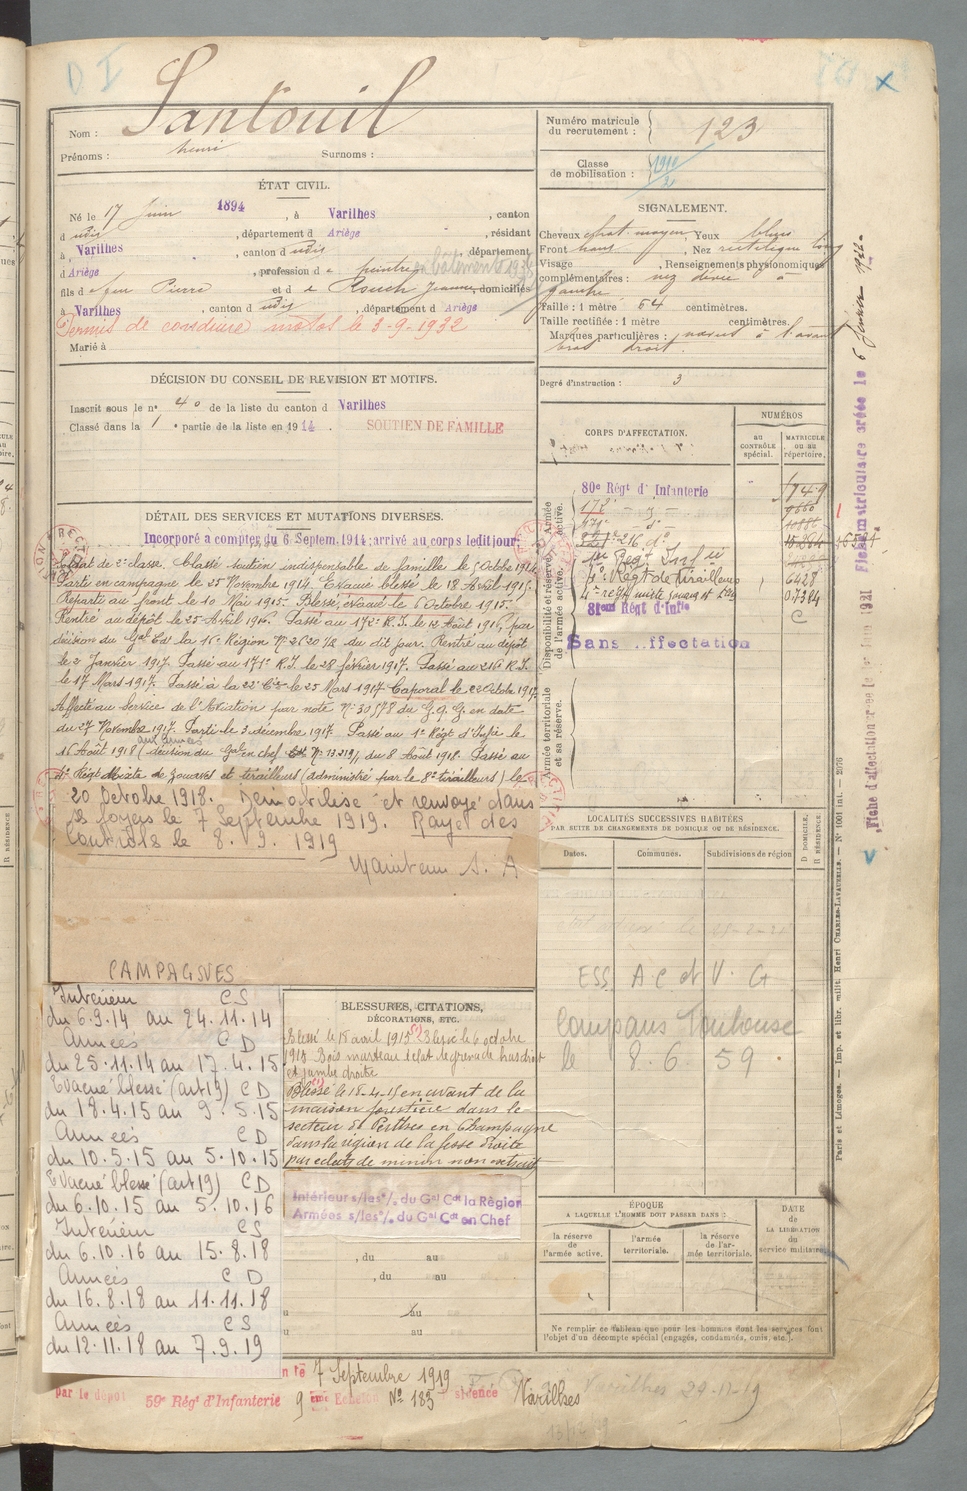 D I
Nom : Santouil
Prénoms : henri Surnoms :
Numéro matricule
du recrutement : 123
Classe
de mobilisation :
ÉTAT CIVIL.
Né le 17 Juin 1894, à Varilhes, canton
d udis, département d Ariège, résidant
à Varilhes, canton d udis, département
d Ariège, profession d e peintre en bâtiment
fils d e feu Pierre et d e Rouch Jeanne, domiciliés
à Varilhes, canton d udis, département d Ariège
Permis de conduire motos le 3-9-1932
Marié à
SIGNALEMENT.
Cheveux chat. moyen, Yeux bleus
Front haus, Nez rectiligne long
Visage , Renseignements physionomiques
complémentaires : nez dévié à
gauche
Taille : 1 mètre 64 centimètres.
Taille rectifiée : 1 mètre centimètres.
Marques particulières : à l'avant
bras droit.
Degré d'instruction : 3
DÉCISION DU CONSEIL DE REVISION ET MOTIFS.
Inscrit sous le n° 40 de la liste du canton d Varilhes
Classé dans la 1e partie de la liste en 1914. SOUTIEN DE FAMILLE
CORPS D'AFFECTATION.
NUMÉROS
AU CONTRÔLE spécial.
MATRICULE ou au répertoire.
80e Régt d'Infanterie 1749
172e - d° - 9660
171e - d° -
216 d°
1er Regt Infie
8e Regt de Tirailleurs 6428
4e regt mixte zouaves et tirs 07384
81eme Régt d'Infie C
Sans affectation
Armée active.
Disponibilité et réserve de l'armée active.
Armée territoriale et sa réserve.
DÉTAIL DES SERVICES ET MUTATIONS DIVERSES.
Incorporé à compter du 6 Septem. 1914; arrivé au corps ledit jour;
Soldat de 2e classe. Classé soutien indispensable de famille le 5 Octobre 1914
Parti en campagne le 25 Novembre 1914. Evacué blessé le 18 Avril 1915.
Reparti au front le 10 Mai 1915. Blessé, évacué le 6 Octobre 1915.
Rentré au dépôt le 25 Avril 1916. Passé au 172e R.I. le 12 Août 1916, par
décision du Gal Cdt la 16e Région N° 2620 1/2 du dit jour. Rentré au dépôt
le 2 Janvier 1917. Passé au 171e R.I. le 28 février 1917. Passé au 216 R.I.
le 17 Mars 1917. Passé à la 22e Cie le 25 Mars 1917. Caporal le 22 Octobre 1917.
Affecté au Service de l'Aviation par note N° 30578 du G.Q.G. en date
du 27 Novembre 1917. Parti le 3 décembre 1917. Passé au 1er Régt d'Infie le
16 Août 1918 (aux armées décision du Gal en chef N° 13219/1 du 8 Août 1918. Passé au
4e Régt Mixte de Zouaves et tirailleurs (administré par le 8e tirailleurs) le
20 Octobre 1918. Démobilisé et renvoyé dans
ses foyers le 7 Septembre 1919. Rayé des
contrôls le 8. 9. 1919
Maintenu S. A
CAMPAGNES
Intérieur CS
du 6.9.14 au 24.11.14
Armées C D
du 25.11.14 au 17.4.15
Evacué blessé (art 19) C D
du 18.4.15 au 9.5.15
Armées C D
du 10.5.15 au 5.10.15
Evacué blessé (art 19) C D
du 6.10.15 au 5.10.16
Intérieur C S
du 6.10.16 au 15.8.18
Armées C D
du 16.8.18 au 11.11.18
Armées C S
du 12.11.18 au 7.9.19
BLESSURES, CITATIONS,
DÉCORATIONS, ETC.
Blessé le 18 avril 1915 (2) Blessé le 6 octobre
1915 Bois marteau éclat de grenade bras droit
et jambe droite
(1) Blessé le 18-4-15 en avant de la
maison forestière dans le
secteur de Perthes en Champagne
dans la région de la fesse droite
par éclats de minen non extrait
Intérieur s/les °/. du Gal Cdt la Région
Armées s/les °/. du Gal Cdt en Chef
, du au
, du au
u au
u au
LOCALITÉS SUCCESSIVES HABITÉES
PAR SUITE DE CHANGEMENTS DE DOMICILE OU DE RÉSIDENCE.
Dates. Communes. Subdivisions de région
D DOMICILE, R RÉSIDENCE.
ESS A C et V. G
Compans Toulouse
le 8. 6 59.
ÉPOQUE
A LAQUELLE L'HOMME DOIT PASSER DANS :
la réserve de l'armée active.
l'armée territoriale.
la réserve de l'armée territoriale.
DATE de LA LIBÉRATION du service militaire
Ne remplir ce tableau que pour les hommes dont les services font
l'objet d'un décompte spécial (engagés, condamnés, omis, etc.).
7 Septembre 1919
par le dépôt 59e Rég. d'Infanterie 9 eme Echelon N° 185 sidence Varilhes
Varilhes 29-12-19
Paris et Limoges. — Imp. et libr. milit. Henri CHARLES-LAVAUZELLE. — N° 1001 int. — 2076
Fiche d'affectation créée le 1er Juin 1921 Fiche matriculaire créée le 6 février 1922